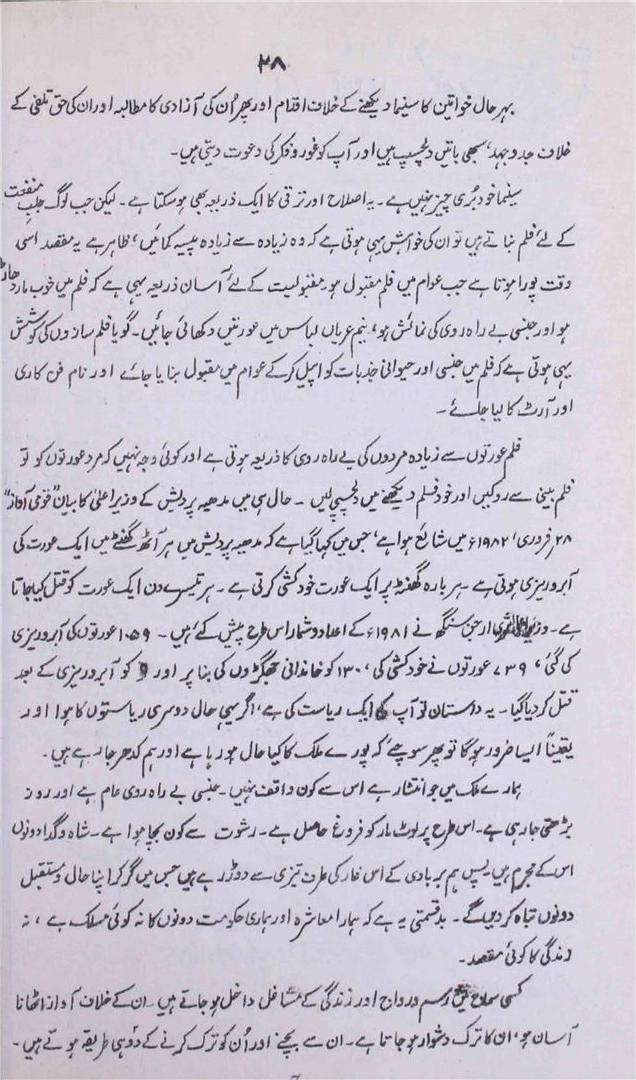 ۲۸
بہر حال خواتین کا سنیما دیکھنے کے خلاف اقدام اور پھر اُن کی آزادی کا مطالبہ اور ان کی حق تلفی کے
خلاف جدوجہد، سبھی باتیں دلچسپ ہیں اور آپ کو غور و فکر کی دعوت دیتی ہیں۔
سنیما خود بُری چیز نہیں ہے۔ یہ اصلاح اور ترقی کا ایک ذریعہ بھی ہو سکتا ہے۔ لیکن جب لوگ جلبِ منفعت
کے لئے فلم بناتے ہیں تو ان کی خواہش یہی ہوتی ہے کہ وہ زیادہ سے زیادہ پیسہ کمائیں، ظاہر ہے یہ مقصد اسی
وقت پورا ہوتا ہے جب عوام میں فلم مقبول ہو مقبولیت کے لئے آسان ذریعہ یہی ہے کہ فلم میں خوب مار دھاڑ
ہو اور جنسی بے راہ روی کی نمائش ہو، نیم عریاں لباس میں عورتیں دکھائی جائیں۔ گویا فلم سازوں کی کوشش
یہی ہوتی ہے کہ فلم میں جنسی اور حیوانی جذبات کو اپیل کر کے عوام میں مقبول بنایا جائے اور نام فن کاری
اور آرٹ کا لیا جائے۔
فلم عورتوں سے زیادہ مردوں کی بے راہ روی کا ذریعہ ہوتی ہے اور کوئی وجہ نہیں کہ مرد عورتوں کو تو
فلم بینی سے روکیں اور خود فلم دیکھنے میں دلچسپی لیں۔ حال ہی میں مدھیہ پردیش کے وزیر اعلیٰ کا بیان "قومی آواز"
۲۸ فروری، ۱۹۸۲ء میں شائع ہوا ہے، جس میں کہا گیا ہے کہ مدھیہ پردیش میں ہر آٹھ گھنٹے میں ایک عورت کی
آبروریزی ہوتی ہے۔ ہر بارہ گھنٹہ پر ایک عورت خود کشی کرتی ہے۔ ہر تیسرے دن ایک عورت کو قتل کیا جاتا
ہے۔ وزیر اعلیٰ ارجن سنگھ نے ۱۹۸۱ء کے اعداد و شمار اس طرح پیش کئے ہیں۔ ۱۰۵۹ عورتوں کی آبروریزی
کی گئی، ۷۳۹ عورتوں نے خود کشی کی، ۱۳۰ کو خاندانی جھگڑوں کی بنا پر اور ۹ کو آبروریزی کے بعد
قتل کر دیا گیا۔ یہ داستان تو آپ کی ایک ریاست کی ہے، اگر یہی حال دوسری ریاستوں کا ہوا اور
یقیناً ایسا ضرور ہوگا تو پھر سوچئے کہ پورے ملک کا کیا حال ہو رہا ہے اور ہم کدھر جا رہے ہیں۔
ہمارے ملک میں جو انتشار ہے اس سے کون واقف نہیں۔ جنسی بے راہ روی عام ہے اور روز
بڑھتی جا رہی ہے۔ اس طرح پر لوٹ مار کو فروغ حاصل ہے۔ رشوت سے کون بچا ہوا ہے۔ شاہ و گدا دونوں
اس کے مجرم ہیں پس ہم بربادی کے اس غار کی طرف تیزی سے دوڑ رہے ہیں جس میں گر کر اپنا حال و مستقبل
دونوں تباہ کر دیں گے۔ بدقسمتی یہ ہے کہ ہمارا معاشرہ اور ہماری حکومت دونوں کا نہ کوئی مسلک ہے، نہ
زندگی کا کوئی مقصد۔
کسی سماج میں رسم و رواج اور زندگی کے مشاغل داخل ہو جاتے ہیں۔ ان کے خلاف آواز اٹھانا
آسان ہو، ان کا ترک دشوار ہو جاتا ہے۔ ان سے بچنے اور اُن کو ترک کرنے کے دو ہی طریقے ہوتے ہیں۔